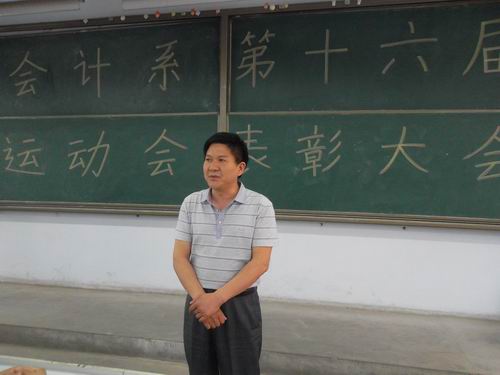 会计系第十六届
运动会表彰大会